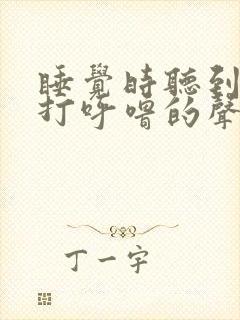 睡覺時聽到
打呼嚕的聲
丁一宇